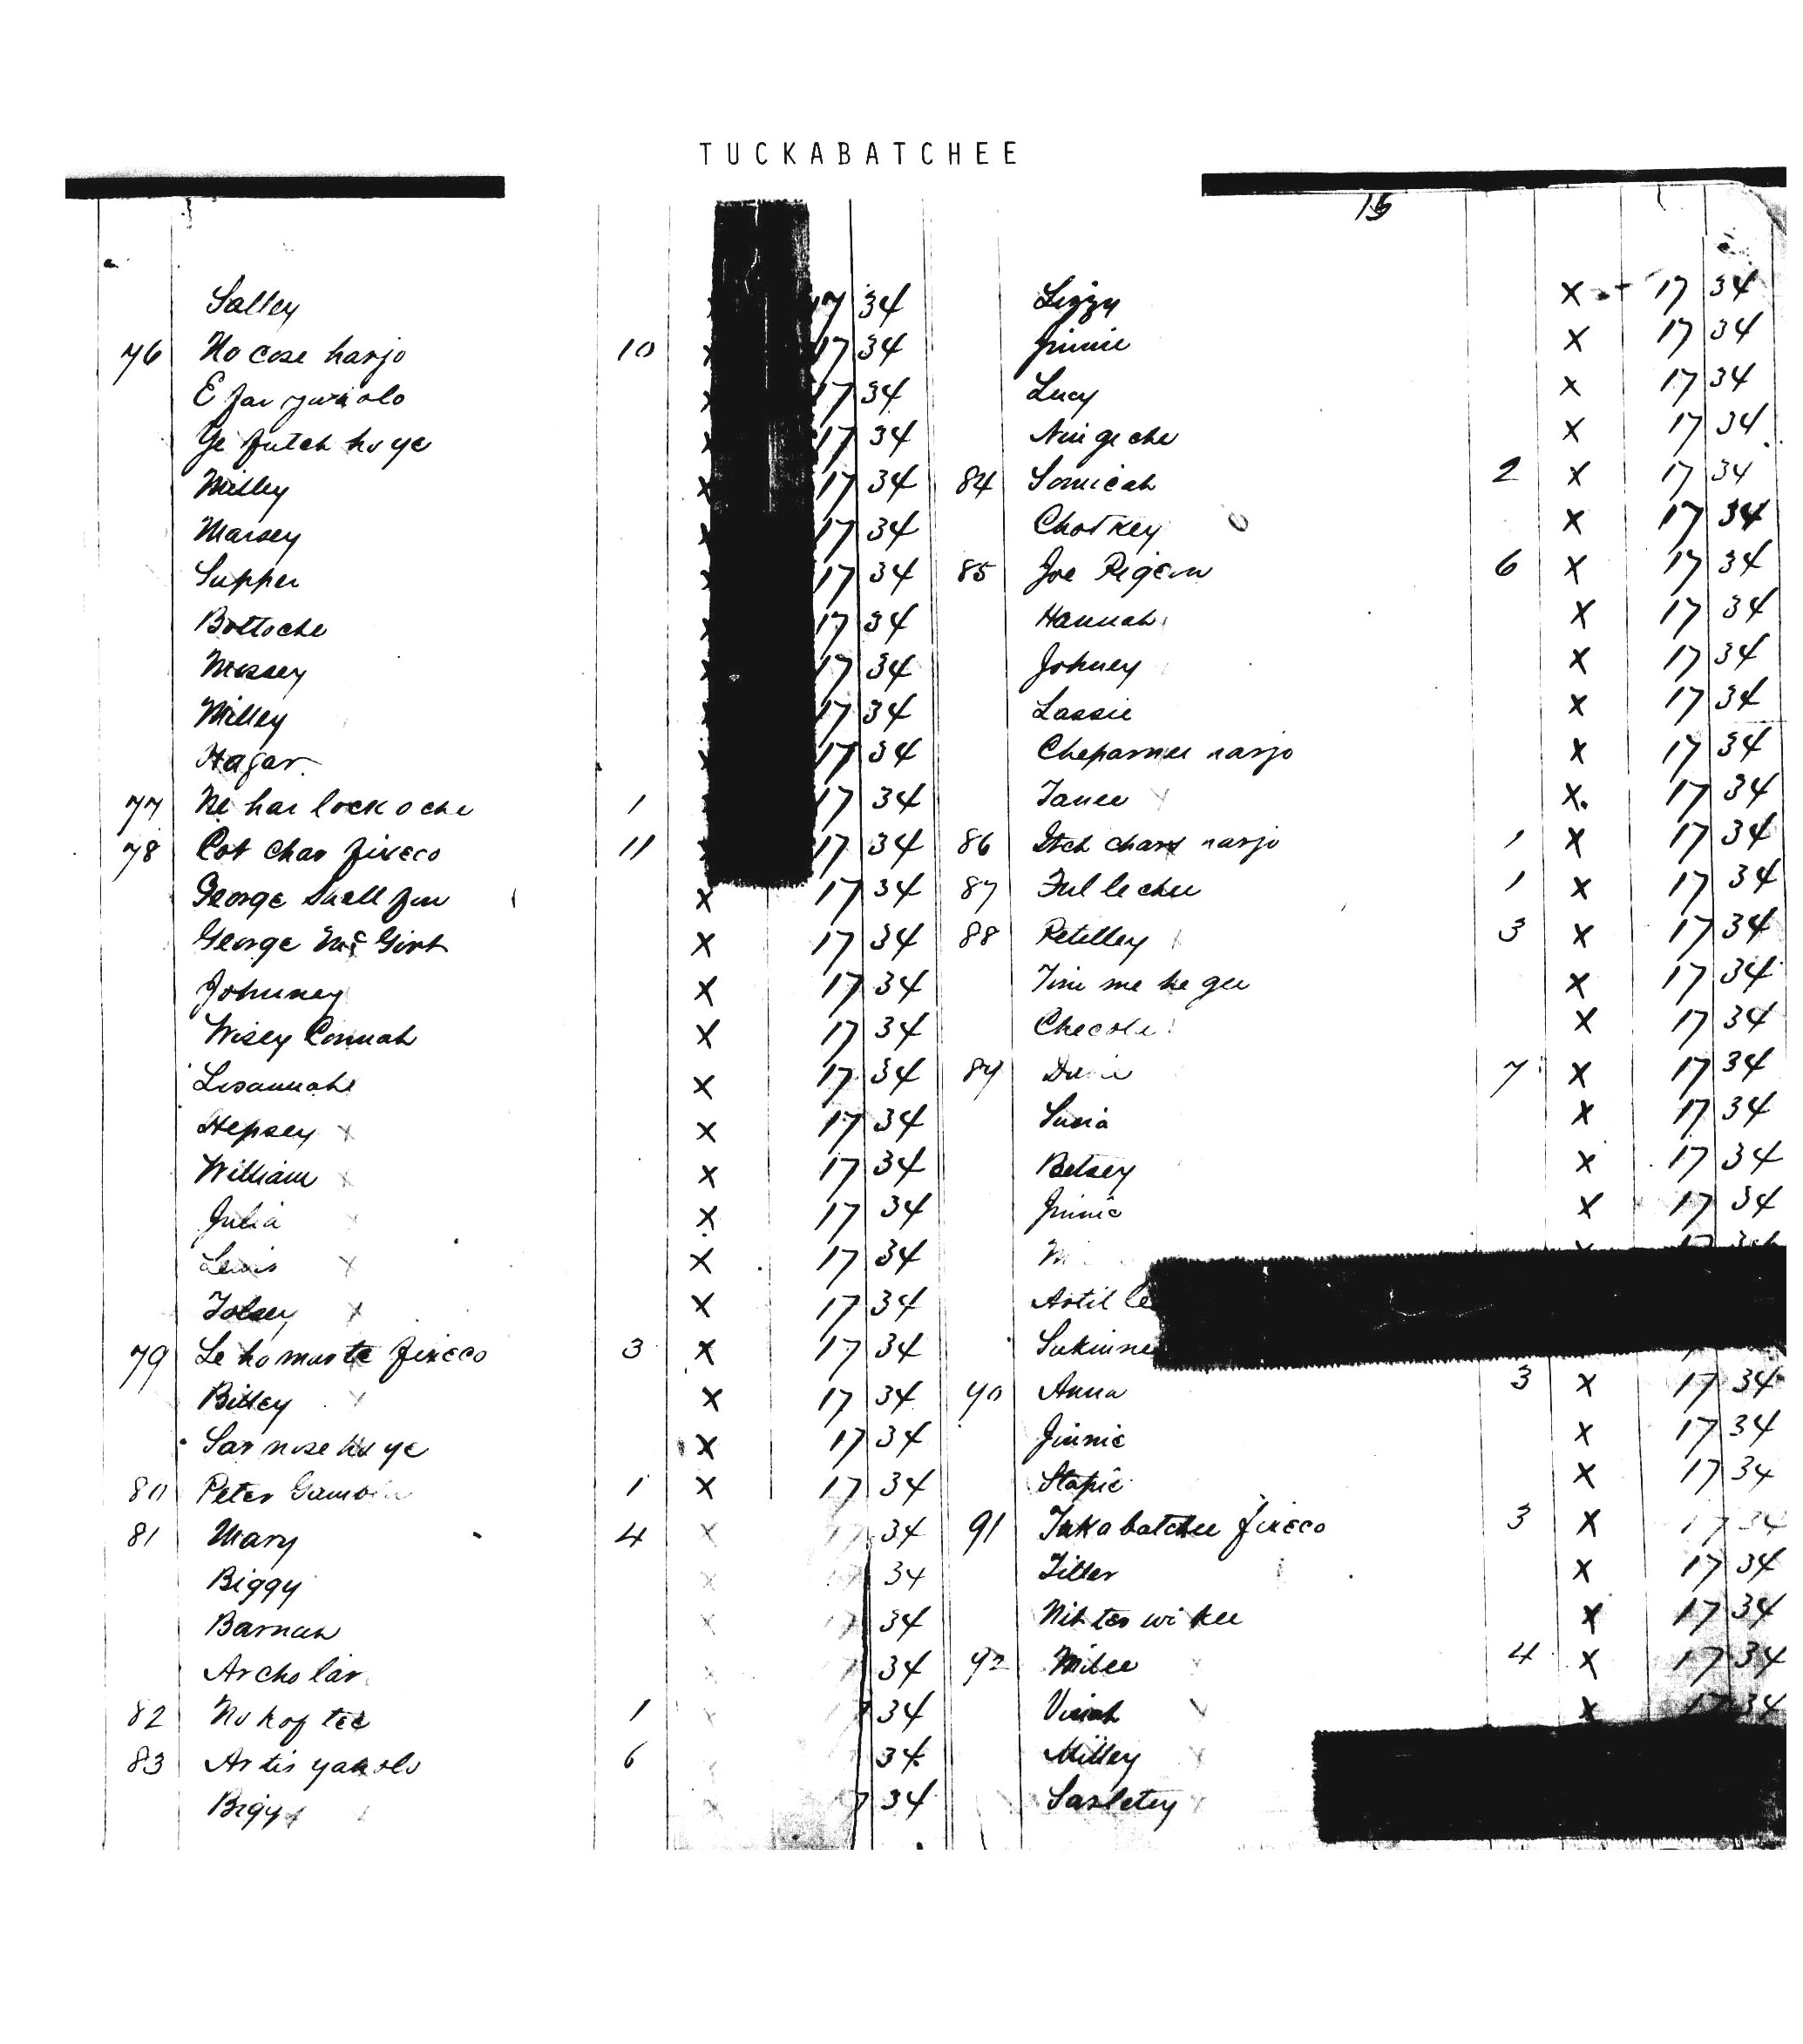 TUCKABATCHEE
15
Salley 17 34
76 No cose harjo 10 17 34
E far 17 34
Ye futch ho ye 17 34
Milley x 17 34
Marsey 17 34
Supper 17 34
Bottoche 17 34
Mossey 17 34
Milley 17 34
Hagar 17 34
77 Ne har lock o che 1 17 34
78 Cot char fixeco 11 17 34
George x 17 34
George McGirt x 17 34
Johnney x 17 34
Wisey Connah x 17 34
x 17 34
Hepsey x x 17 34
William x x 17 34
Julia x x 17 34
Lewis x x 17 34
x x 17 34
79 Le ho marte fixeco 3 x 17 34
Billey x 17 34
Sar nose ho ye x 17 34
80 Peter 1 x 17 34
81 Mary 4 x 34
Biggy x 34
Barnah x 34
Archo lar x 34
82 No kop tee 1 x 34
83 Ar tis yah olo 6 34
Bigy x 7 34
Lizzy x 17 34
Jinnie x 17 34
Lucy x 17 34
x 17 34
84 Somicah 2 x 17 34
Chotkey x 17 34
85 Joe Pigeon 6 x 17 34
Hannah x 17 34
Johney x 17 34
Lassie x 17 34
Cheparnee harjo x 17 34
Janee x 17 34
86 Itch chars harjo 1 x 17 34
87 Ful le chee 1 x 17 34
88 Petilley 3 x 17 34
Tim me he gee x 17 34
Checote x 17 34
89 7 x 17 34
Susia x 17 34
Betsey x 17 34
Jinnie x 17 34
Artil le
Sukinne
90 Anna 3 x 17 34
Jinnie x 17 34
Stapie x 17 34
91 Tuka batchee fixeco 3 x 17 34
Tiller x 17 34
x 17 34
92 Milee 4 x 17 34
Vinah x 17 34
Milley
Sarletey